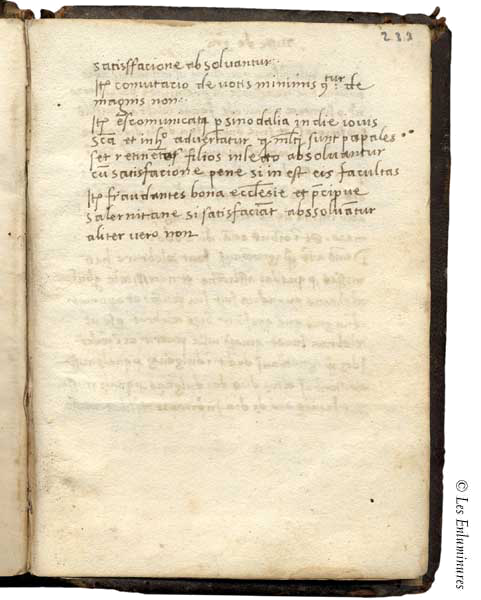 232
satisffacione absolvantur.
Itē comutacio de votis minimis 9tur. de
magnis non.
Itē excomunicatj p sinodalia in die iovis
Scā et in hoc advertatur q mltj sunt papales
set retinētes filios in lecto absolvantur
cū satisfacione pene si in est eis facultas
Itē fraudantes bona ecclesie et p̄cipue
salernitane si satisfaciāt abssolvātur
aliter vero non
© Les Enluminures